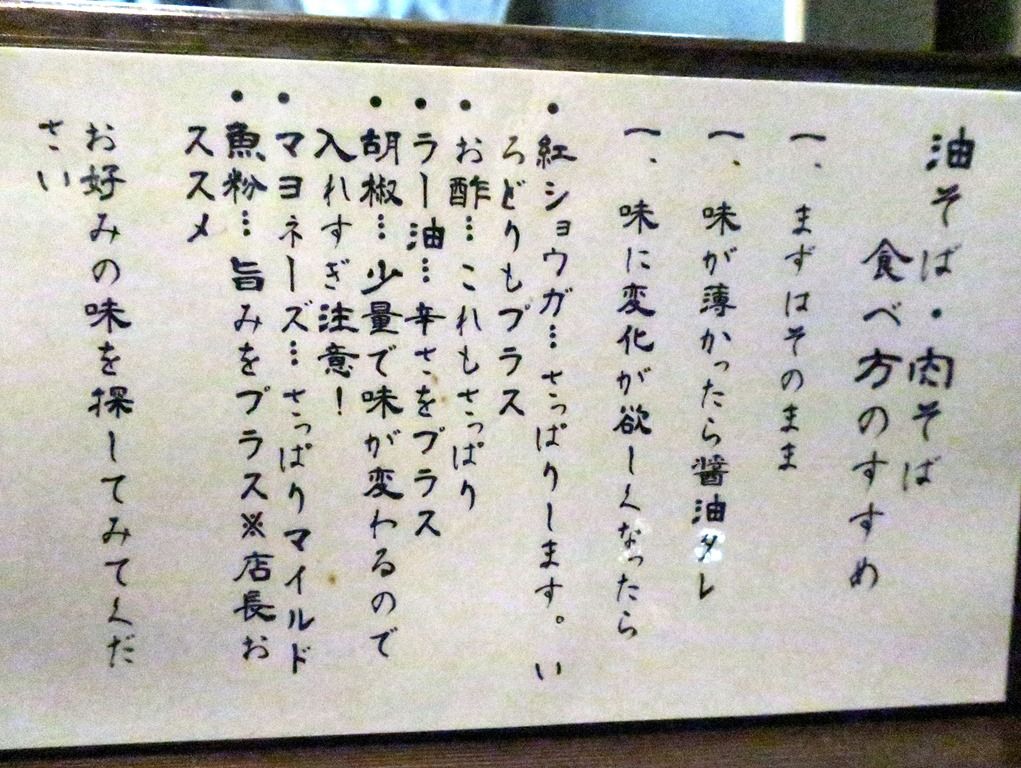 油そば・肉そば
食べ方のすすめ
一、まずはそのまま
一、味が薄かったら醤油タレ
一、味に変化が欲しくなったら
・紅ショウガ…さっぱりします。い
ろどりもプラス
・お酢…これもさっぱり
・ラー油…辛さをプラス
・胡椒…少量で味が変わるので
入れすぎ注意!
・マヨネーズ…さっぱりマイルド
・魚粉…旨みをプラス※店長お
ススメ
お好みの味を探してみてくだ
さい